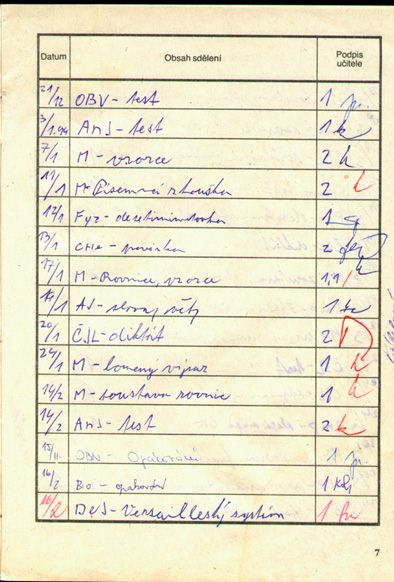 Datum Obsah sdělení Podpis učitele
21/12 OBV - test 1
3/1.94 ANJ - test 1
7/1 M - vzorce 2
11/1 M - Písemná zkouška 2
12/1 Fyz - desetiminutovka 1
13/1 CHE - povídka 2
17/1 M - Rovnice, vzorce 1,1
19/1 AJ - slovní věty 1
20/1 ČJL - diktát 2
24/1 M - lomený výraz 1
14/2 M - soustava rovnic 1
14/2 ANJ - test 2
15/II. OBV - Opakování 1
16/2 BO - opakování 1
16/2 DEJ - Versailleský systém 1
7